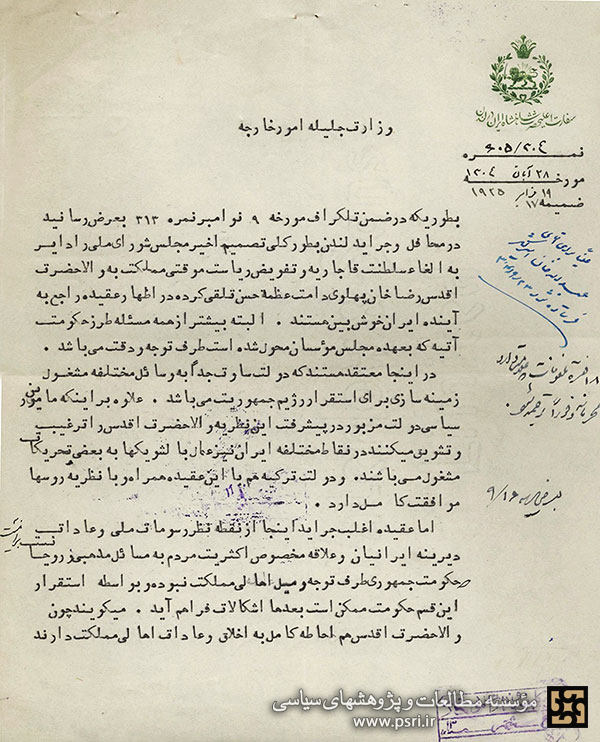 سفارت اعلیحضرت شاهنشاه ایران لندن
وزارت جلیله امور خارجه
نمره ۶۰۵/۲۰۴
مورخه ۲۸ آبان ۱۳۰۴
۱۹ نوامبر ۱۹۲۵
ضمیمه ۱۷
بطوریکه در ضمن تلگراف مورخه ۹ نوامبر نمره ۳۱۳ بعرض رسانید
در محافل و جراید لندن بطور کلی تصمیم اخیر مجلس شورای ملی را دایر
به الغاء سلطنت قاجاریه و تفویض ریاست موقتی مملکت به والاحضرت
اقدس رضا خان پهلوی دامت عظمة حسن تلقی کرده در اظهار عقیده راجع به
آینده ایران خوش بین هستند . البته بیشتر از همه مسئله طرز حکومت
آتیه که بعهده مجلس مؤسسان محول شده است طرف توجه و دقت می باشد .
در اینجا معتقد هستند که دولت ساوت جداً به وسائل مختلفه مشغول
زمینه سازی برای استقرار رژیم جمهوریت می باشد . علاوه بر اینکه مامورین
سیاسی دولت مزبور در پیشرفت این نظریه والاحضرت اقدس را ترغیب
و تشویق میکنند در نقاط مختلفه ایران نیز عمال بالشویکها به بعضی تحریکات
مشغول می باشند . و دولت ترکیه هم با این عقیده همراه و با نظریه روسها
موافقت کامل دارد .
اما عقیده اغلب جراید اینجا از نقطه نظر رسومات ملی و عادات
دیرینه ایرانیان و علاقه مخصوص اکثریت مردم به مسائل مذهبی و روحانیت
حکومت جمهوری طرف توجه و میل اهالی مملکت نبوده و بواسطه استقرار
این قسم حکومت ممکن است بعدها اشکالات فراهم آید . میگویند چون
والاحضرت اقدس هم احاطه کامل به اخلاق و عادات اهالی مملکت دارند
۹/۱۶
مؤسسه مطالعات و پژوهشهای سیاسی
www.psri.ir